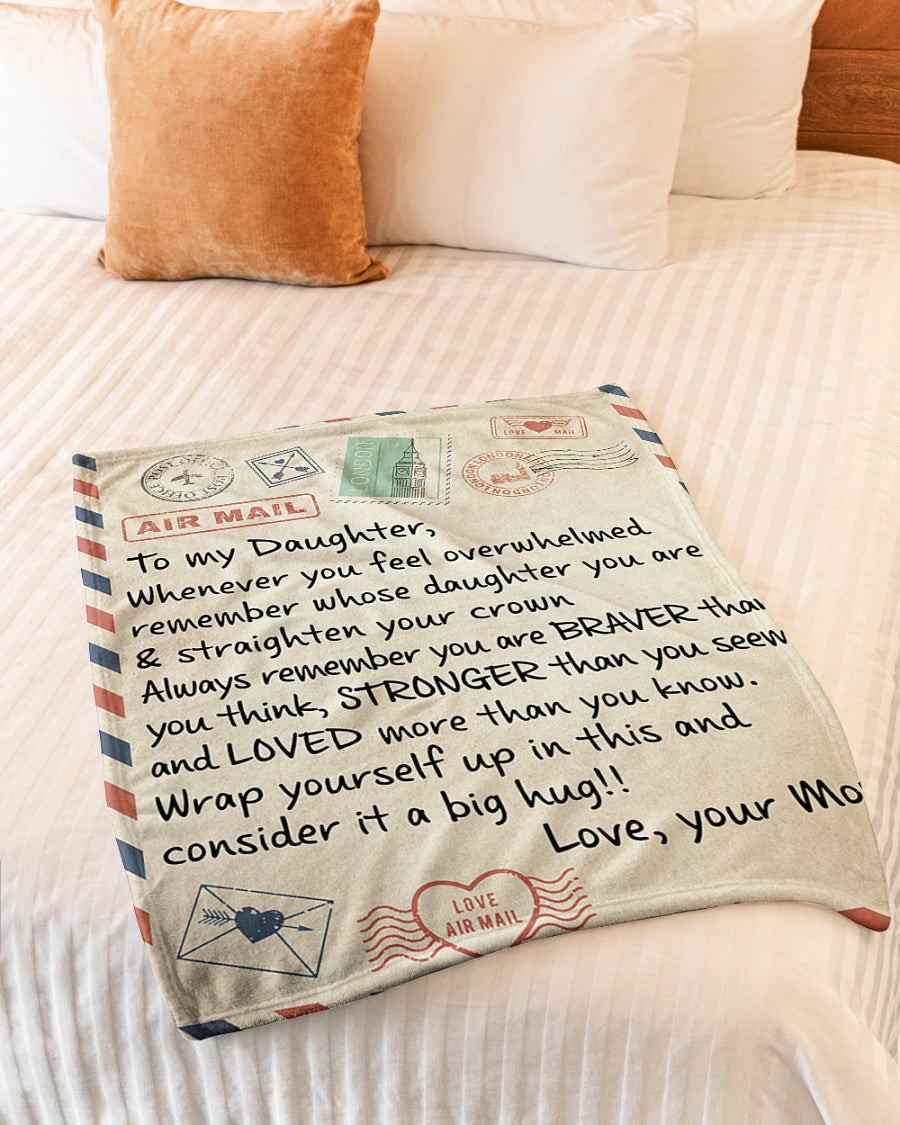 LOVE MAIL
POST OFFICE POST OFFICE
LONDON
LONDON LONDON LONDON LONDON
AIR MAIL
To my Daughter,
Whenever you feel overwhelmed
remember whose daughter you are
& straighten your crown
Always remember you are BRAVER than
you think, STRONGER than you seem
and LOVED more than you know.
Wrap yourself up in this and
consider it a big hug!!
Love, your Mo
LOVE
AIR MAIL